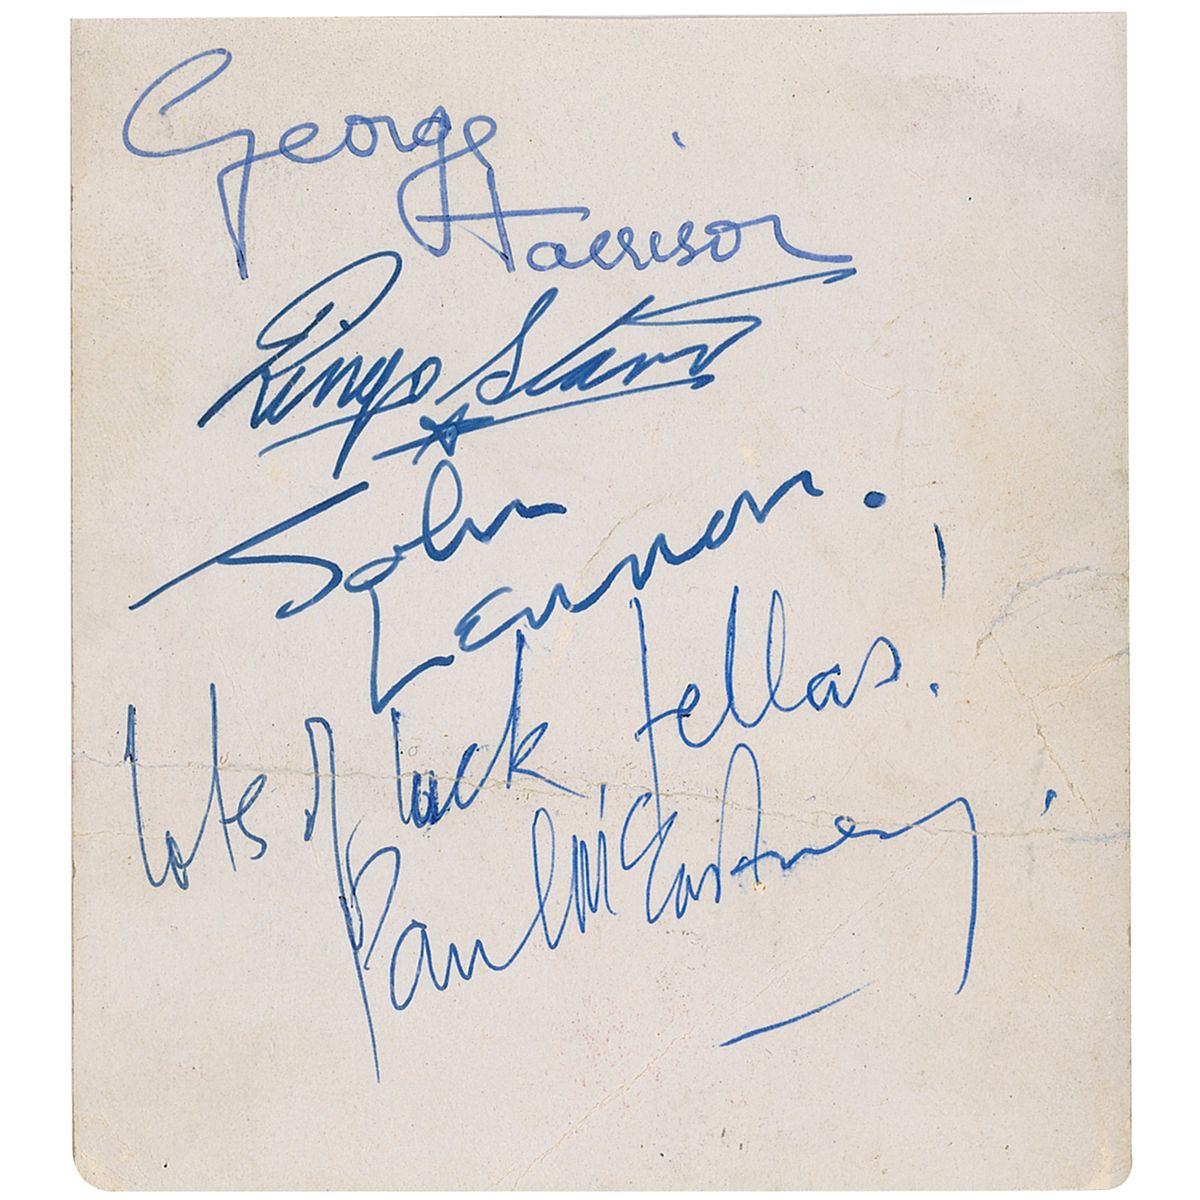 George
Harrison
Ringo Starr
John
Lennon.
lots of luck fellas!
Paul McCartney